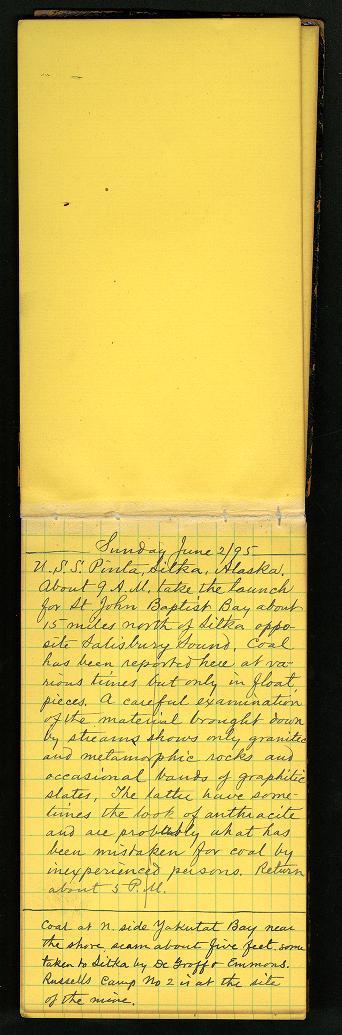 Sunday June 2/95
U.S.S. Pinta, Sitka, Alaska.
About 9 A.M. take the launch
for St John Baptist Bay about
15 miles north of Sitka oppo-
site Salisbury Sound. Coal
has been reported here at va-
rious times but only in float
pieces. A careful examination
of the material brought down
by streams shows only granitic
and metamorphic rocks and
occasional bands of graphitic
slates, The latter have some-
times the look of anthracite
and are probably what has
been mistaken for coal by
inexperienced persons. Return
about 5 P.M.
Coal at N. side Yakutat Bay near
the shore, seam about five feet. some
taken to Sitka by De Groff & Emmons.
Russells Camp No 2 is at the site
of the mine.